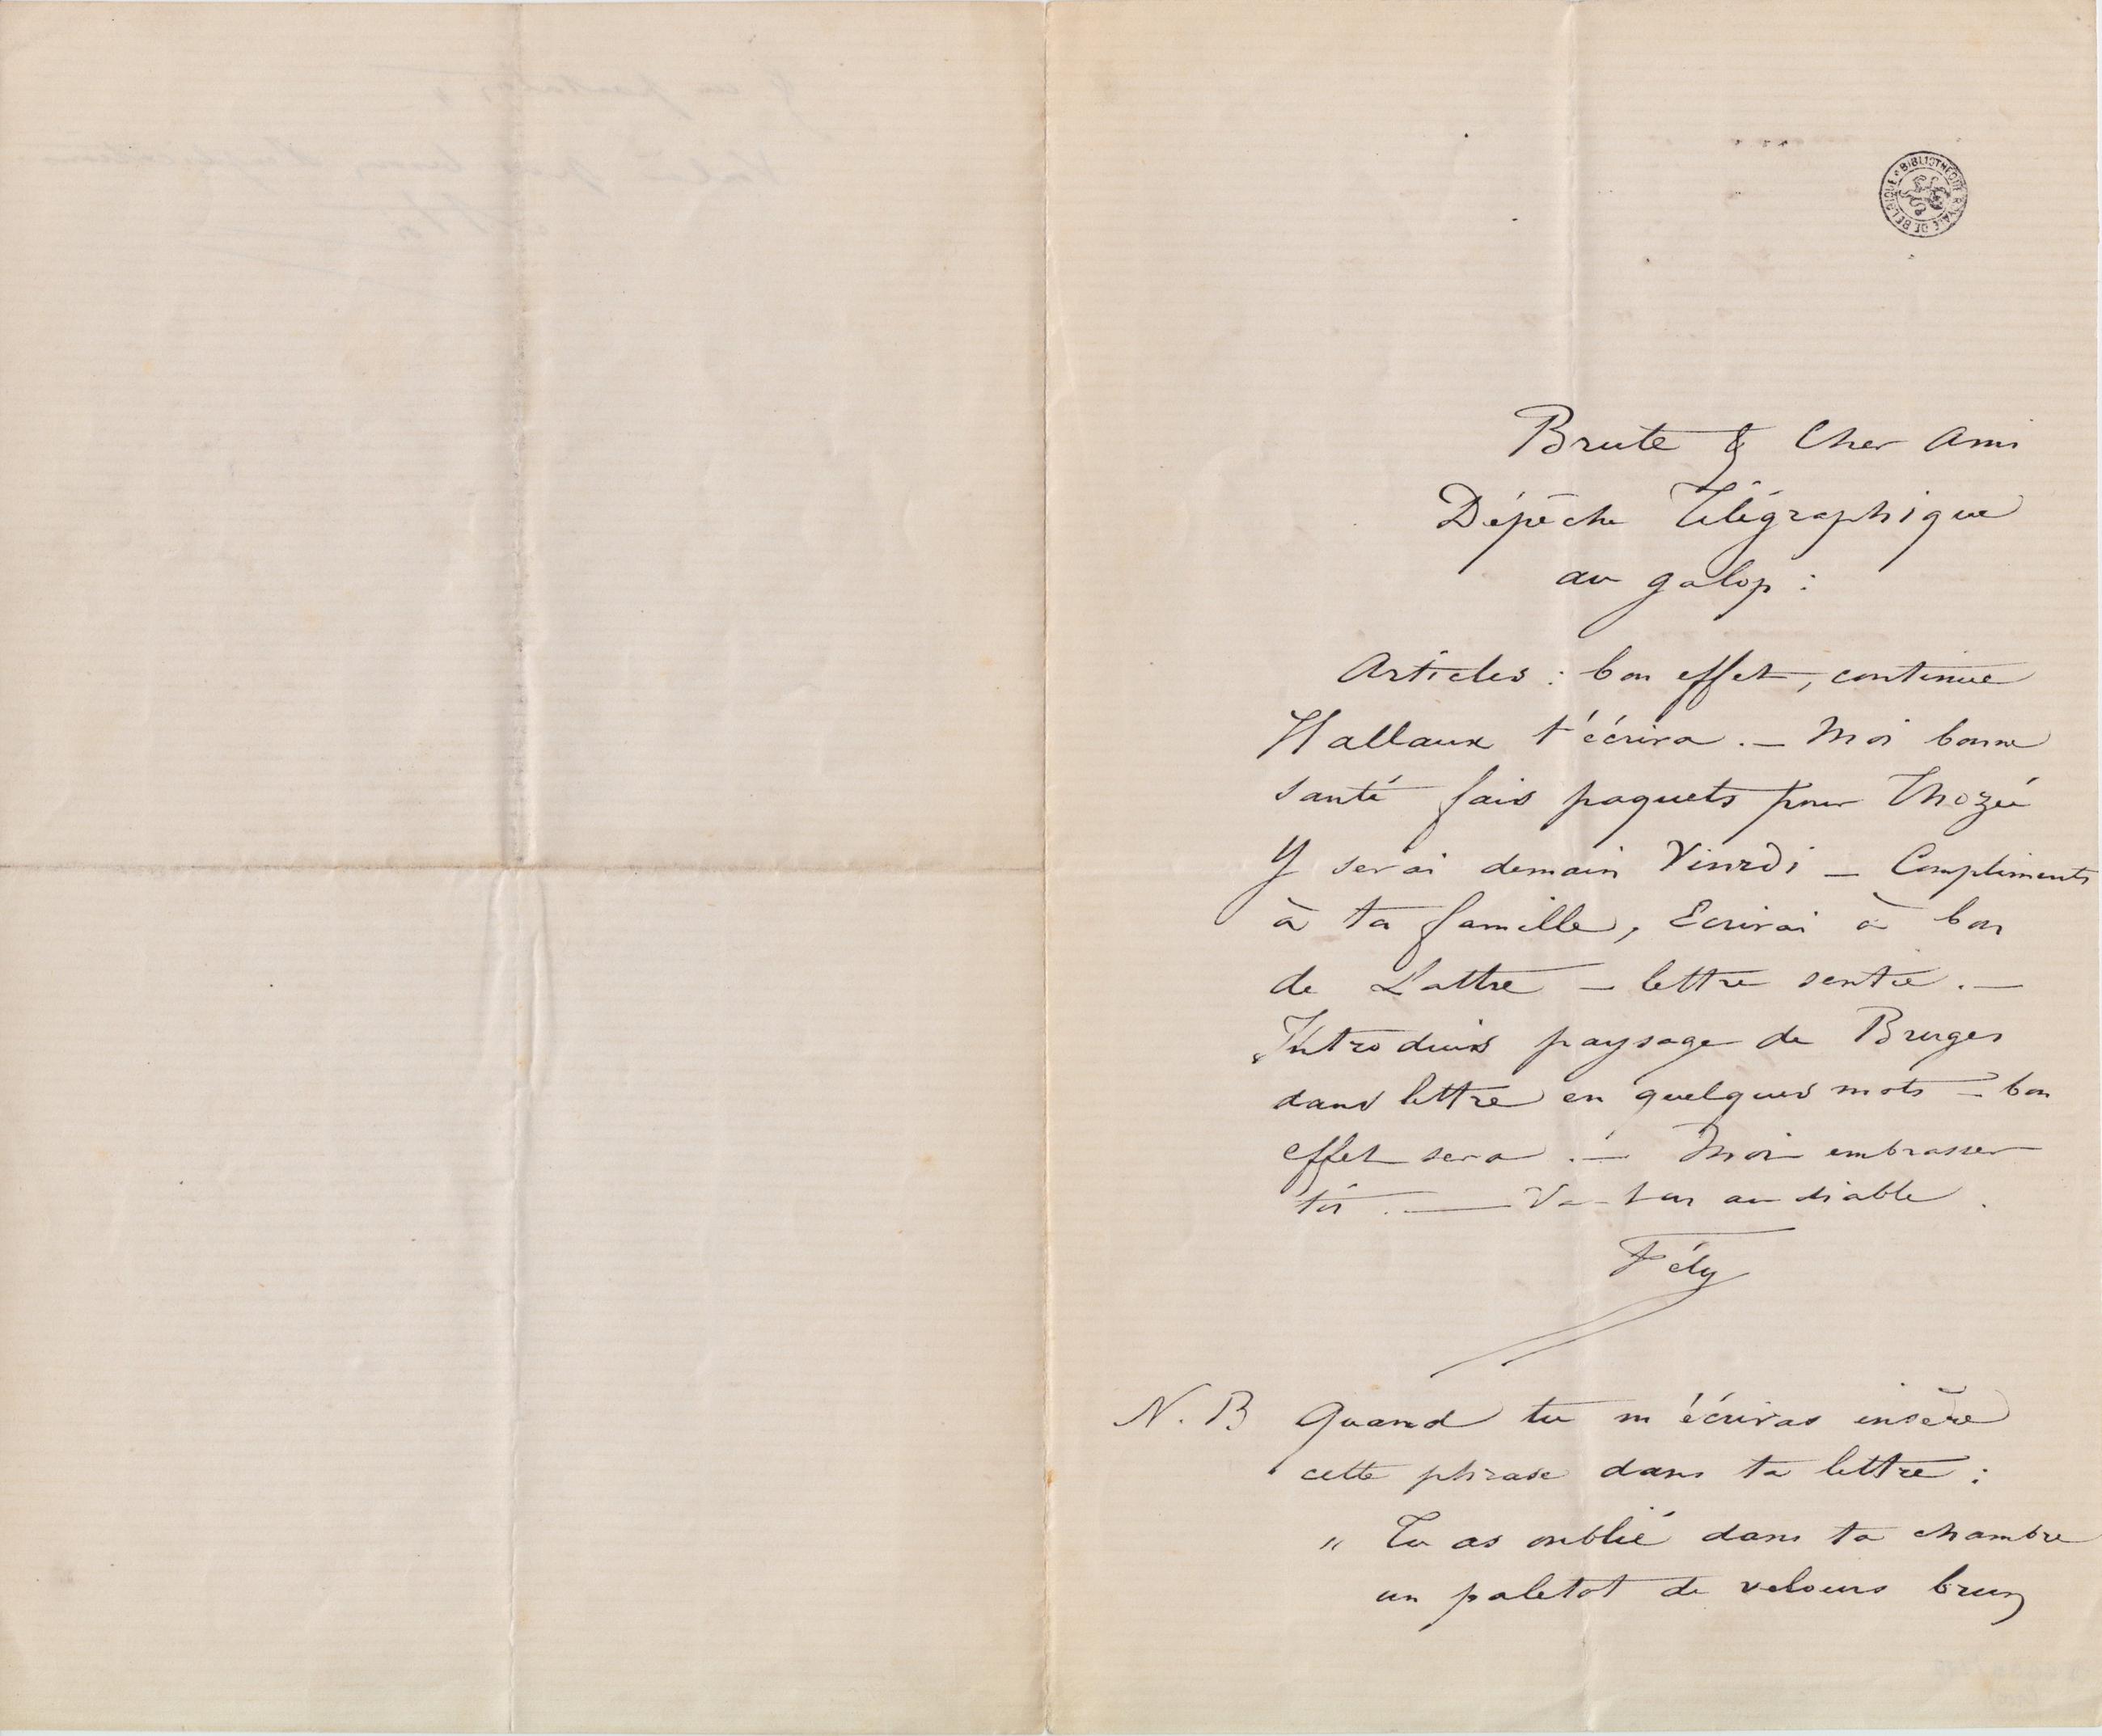 BIBLIOTHEQUE ROYALE DE BELGIQUE
Brute & Cher Ami
Dépêche Télégraphique
au galop :
Articles : bon effet, continue
Hallaux t'écrira . — Moi bonne
santé fais paquets pour Thozée
Y serai demain Vinrdi — Compliments
à ta famille, Ecrirai à bon
de Lattre — lettre sentie . —
Introduis paysage de Bruges
dans lettre en quelques mots — bon
effet sera . — Moi embrasser
toi . — Va-t-en au diable .
Fély
N. B Quand tu m'écriras insère
cette phrase dans ta lettre :
" Tu as oublié dans ta chambre
un paletot de velours brun